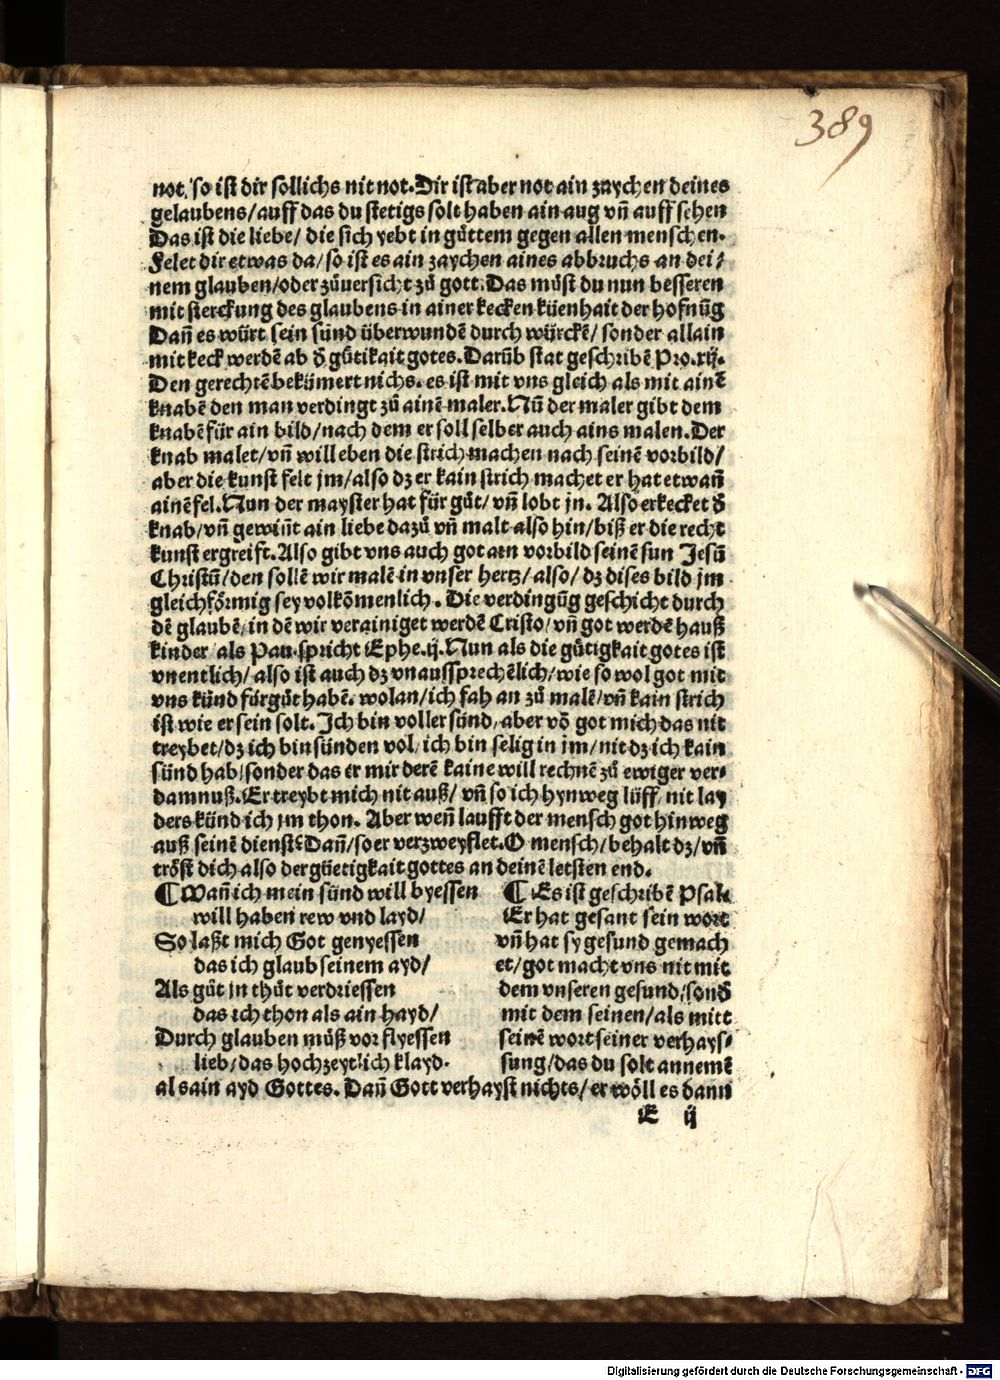 389
not, so ist dir sollichs nit not. Dir ist aber not ain zaychen deines
gelaubens/ auff das du stetigs solt haben ain aug vñ auff sehen
Das ist die liebe/ die sich yebt in güttem gegen allen menschen.
Felet dir etwas da/ so ist es ain zaychen aines abbruchs an dei/
nem glauben/ oder zůuersicht zů gott. Das můst du nun besseren
mit sterckung des glaubens in ainer kecken küenhait der hofnūg
Dañ es würt sein sünd überwundē durch würckē/ sonder allain
mit keck werdē ab ð gůtikait gotes. Darūb stat geschribē Pro.xij.
Den gerechtē bekümert nichs. es ist mit vns gleich als mit ainē
knabē den man verdingt zů ainē maler. Nū der maler gibt dem
knabē für ain bild/ nach dem er soll selber auch ains malen. Der
knab malet/ vñ will eben die strich machen nach seinē vorbild/
aber die kunst felt jm/ also dz er kain strich machet er hat etwañ
ainē fel. Nun der mayster hat für gůt/ vñ lobt jn. Also erkecket ð
knab/ vñ gewiñt ain liebe dazů vñ malt also hin/ biß er die recht
kunst ergreift. Also gibt vns auch got ain vorbild seinē sun Jesū
Christū/ den sollē wir malē in vnser hertz/ also/ dz dises bild jm
gleichförmig sey volkōmenlich. Die verdingūg geschicht durch
dē glaubē/ in dē wir verainiget werdē Cristo/ vñ got werdē hauß
kinder/ als Pau. spricht Ephe.ij. Nun als die gütigkait gotes ist
vnentlich/ also ist auch dz vnaussprechēlich/ wie so wol got mit
vns künd fürgůt habē. wolan/ ich fah an zů malē/ vñ kain strich
ist wie er sein solt. Ich bin voller sünd/ aber vō got mich das nit
treybet/ dz ich bin sünden vol/ ich bin selig in jm/ nit dz ich kain
sünd hab/ sonder das er mir derē kaine will rechnē zů ewiger ver/
damnuß. Er treybt mich nit auß/ vñ so ich hynweg lüff/ nit lay
ders künd ich jm thon. Aber weñ laufft der mensch got hinweg
auß seinē dienst? Dañ/ so er verzweyflet. O mensch/ behalt dz/ vñ
tröst dich also der güetigkait gottes an deinē letsten end.
¶ Wañ ich mein sünd will byessen
will haben rew vnd layd/
So laßt mich Got genyessen
das ich glaub seinem ayd/
Als gůt jn thůt verdriessen
das ich thon als ain hayd/
Durch glauben můß vor flyessen
lieb/ das hochzeytlich klayd.
¶ Es ist geschribē Psal.
Er hat gesant sein wort
vñ hat sy gesund gemach
et/ got macht vns nit mit
dem vnseren gesund/ sonð
mit dem seinen/ als mitt
seinē wort seiner verhays/
sung/ das du solt annemē
als ain ayd Gottes. Dañ Gott verhayst nichts/ er wöll es dann
E ij
Digitalisierung gefördert durch die Deutsche Forschungsgemeinschaft - DFG